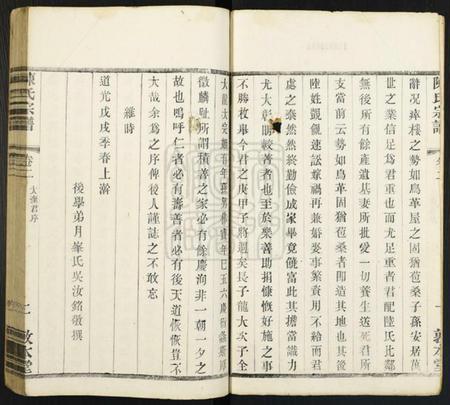 陳氏宗譜
卷二
敦本堂
辭况瘁樓之勢如鳥革屋之固猶苞桑子孫安居
世之業信足爲君重也而尤足重者君配陸氏比鄰
無後所有餘產遺基妻所批愛一切養生送死君所
支當前云勢如鳥革固猶苞桑者即造其地也其後
陸姓覬覦速訟嫁禍再兼婚娶事繁費用不給而君
處之泰然然終勤儉成家畢竟饒富此其擔當識力
尤大彰明較著者也至於樂善助捐慷慨好施之事
不勝枚舉今君之庚甲子將週矣長子龍大次子全
大龍大
徵麟趾所謂積善之家必有餘慶洵非一朝一夕之
故也嗚呼仁者必有壽善者必有後天道恢恢豈不
大哉余爲之序俾後人謹誌之不敢忘
維時
道光戊戌季春上澣
後學弟月峯氏吳汝銘敬撰
陳氏宗譜
卷二
太壅君序
二
敦本堂